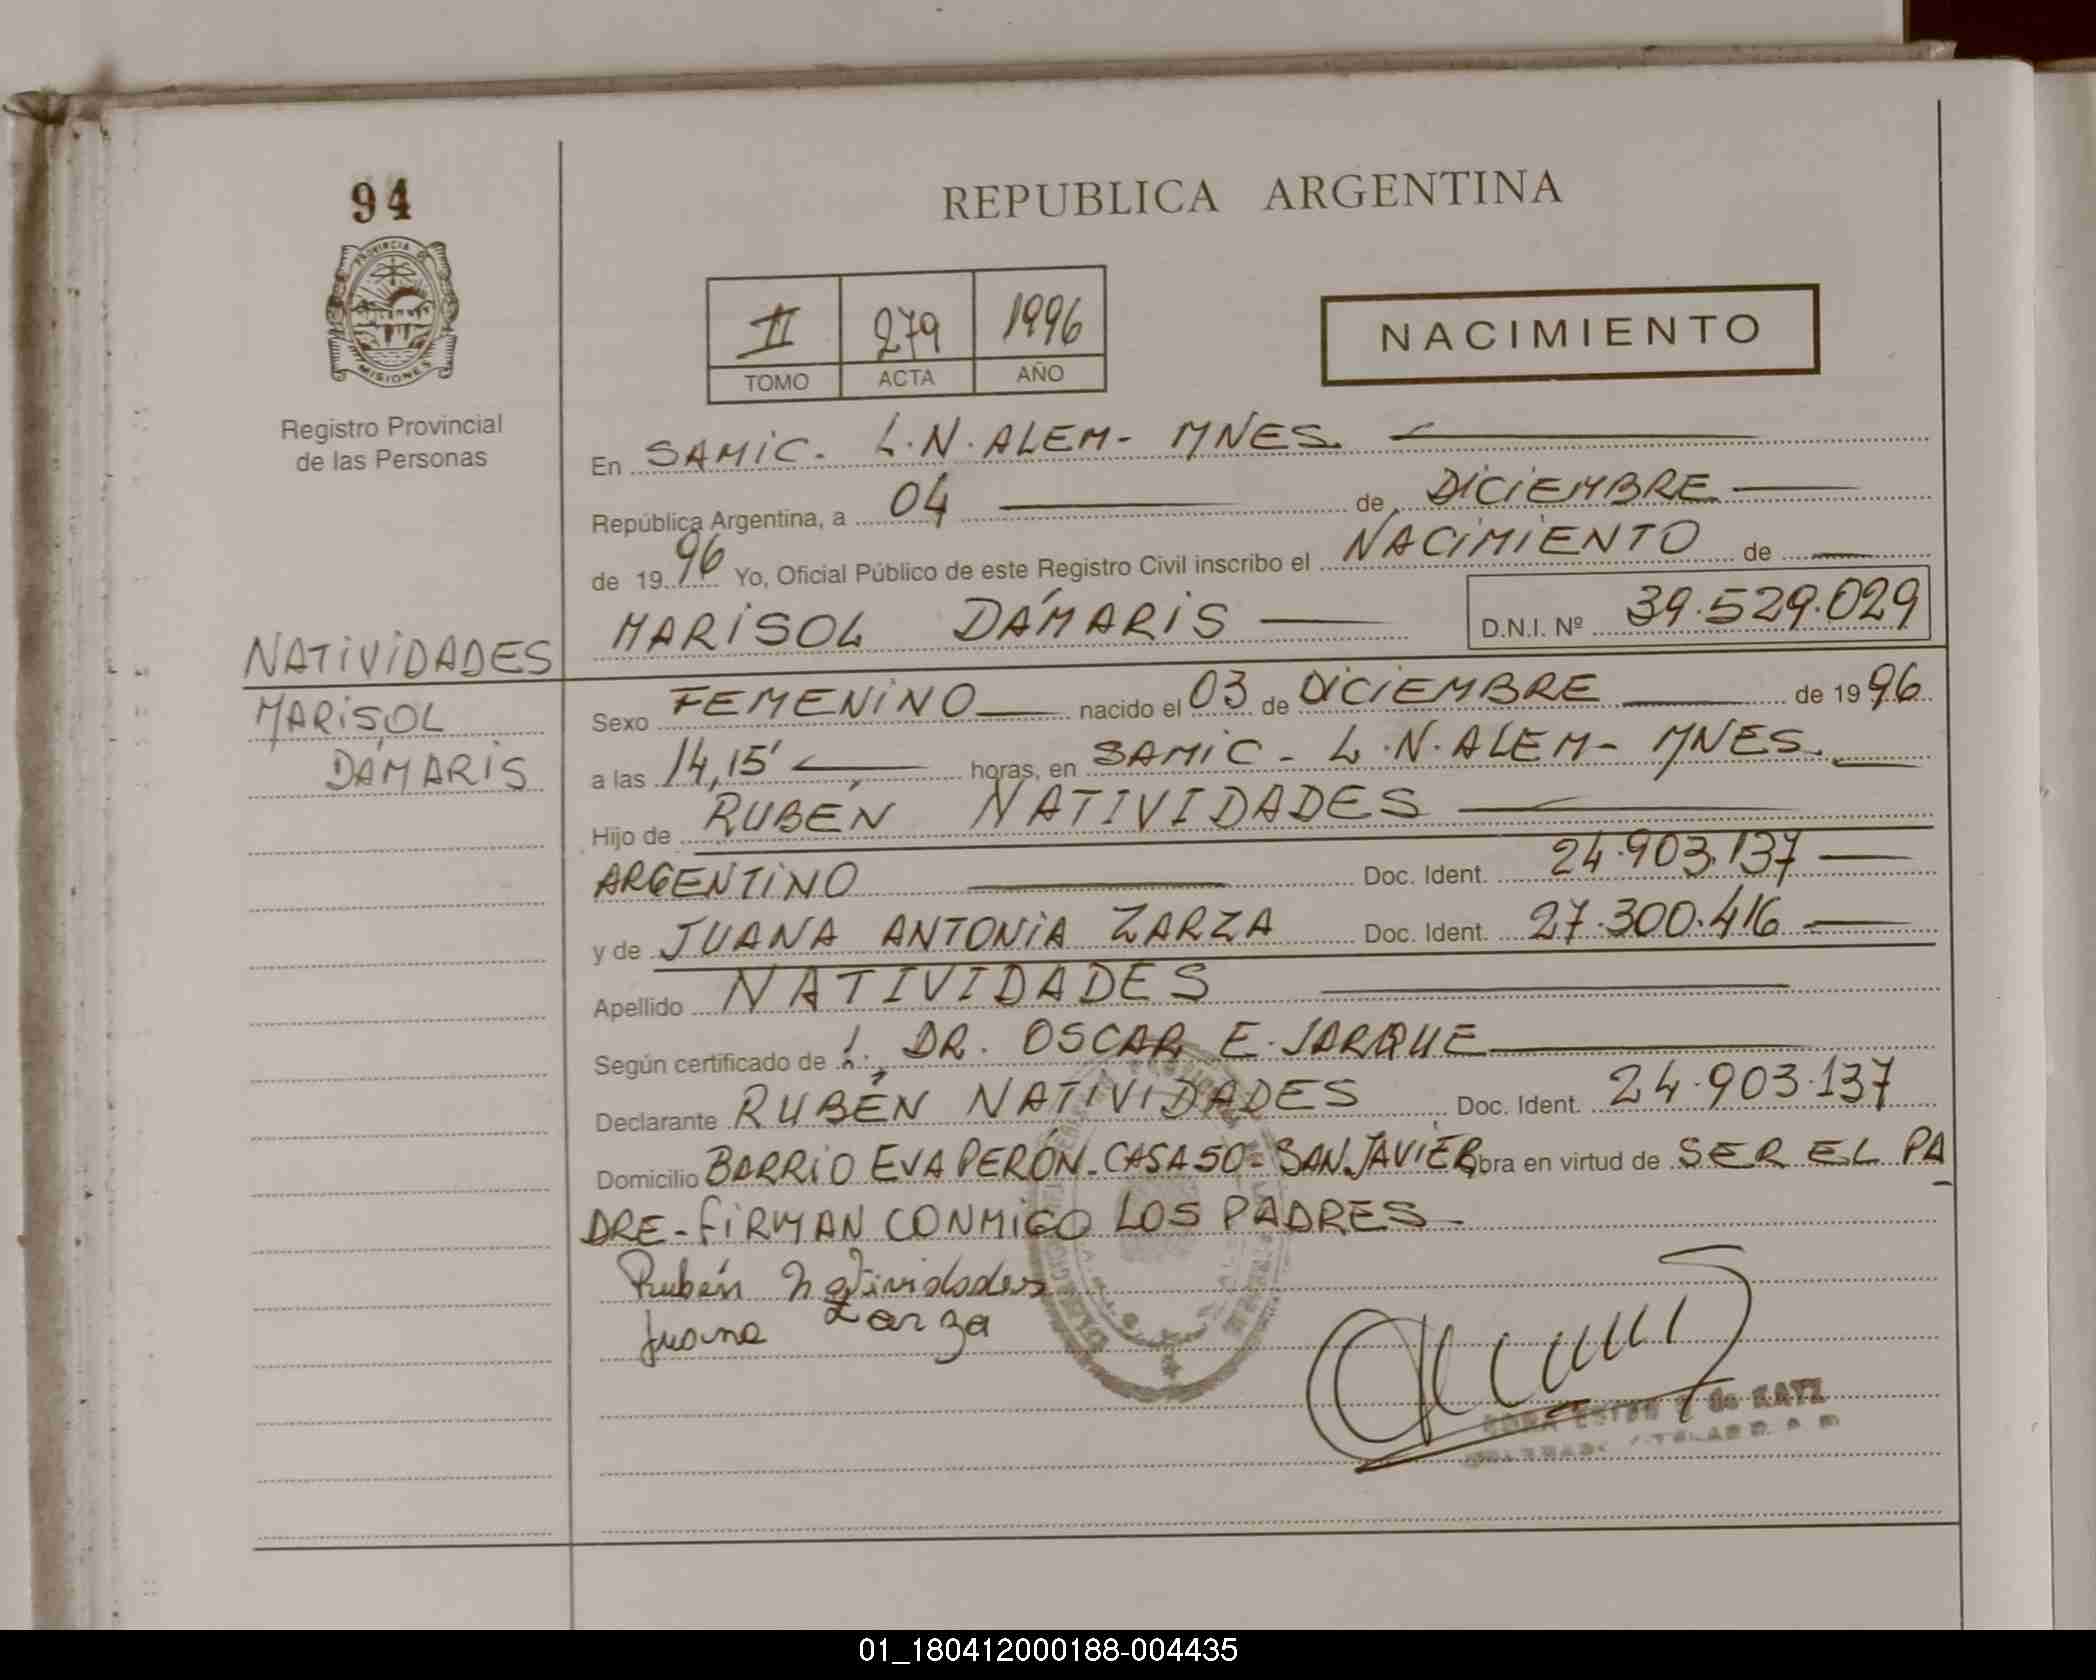 94
PROVINCIA DE
MISIONES
Registro Provincial
de las Personas
NATIVIDADES
MARISOL
DÁMARIS
REPUBLICA ARGENTINA
II 279 1996
TOMO ACTA AÑO
NACIMIENTO
En SAMIC. L.N.ALEM- MNES.
República Argentina, a 04 de DICIEMBRE
de 1996 Yo, Oficial Público de este Registro Civil inscribo el NACIMIENTO de
MARISOL DÁMARIS D.N.I. Nº 39.529.029
Sexo FEMENINO nacido el 03 de DICIEMBRE de 1996
a las 14,15' horas, en SAMIC - L.N.ALEM- MNES.
Hijo de RUBÉN NATIVIDADES
ARGENTINO Doc. Ident. 24.903.137
y de JUANA ANTONIA ZARZA Doc. Ident. 27.300.416
Apellido NATIVIDADES
Según certificado de : DR. OSCAR E. JARQUE
Declarante RUBÉN NATIVIDADES Doc. Ident. 24.903.137
Domicilio BARRIO EVA PERÓN-CASA 50-SAN JAVIER obra en virtud de SER EL PA
DRE-FIRMAN CONMIGO LOS PADRES-
Rubén Natividades
Juana Zarza
de KATZ
01_180412000188-004435